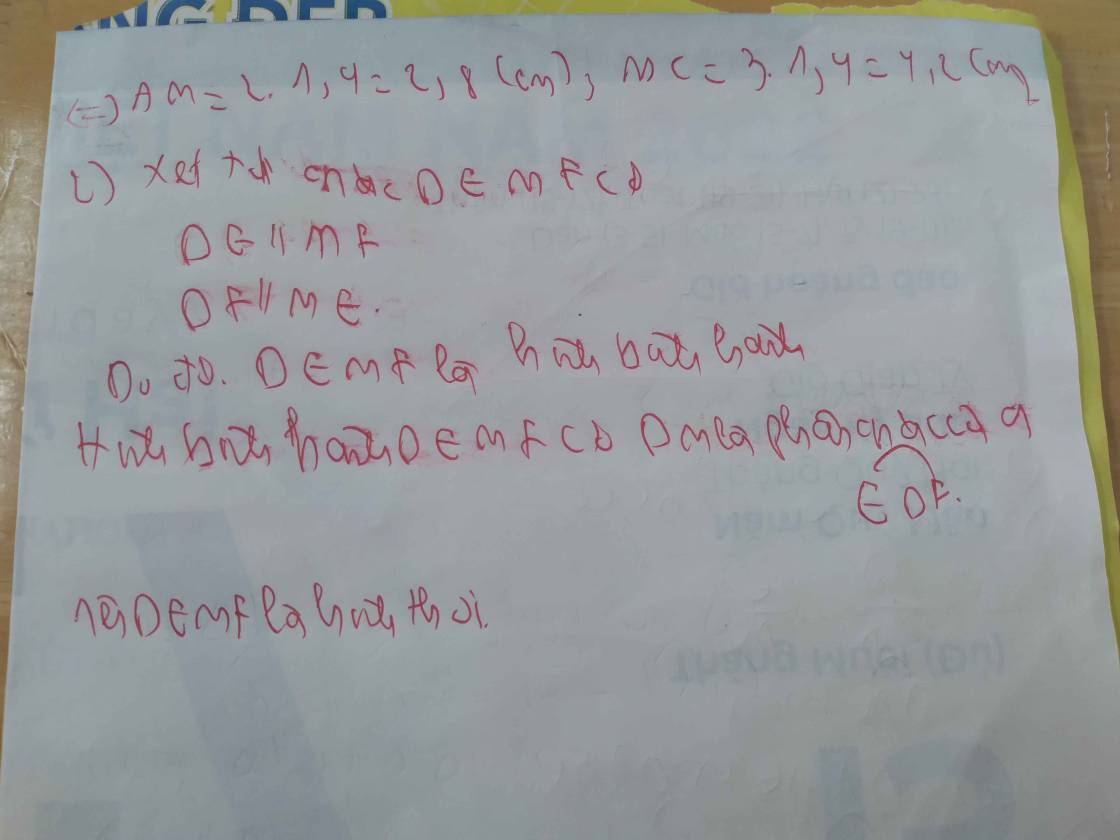 NG ĐẸP
(=) AM = 2. 1,4 = 2,8 (cm); MC = 3. 1,4 = 4,2 (cm)
c) Xét tứ giác DEMF có
DE // MF
DF // ME.
Do đó. DEMF là hình bình hành
Hình bình hành DEMF có DM là phân giác của
EDF.
nên DEMF là hình thoi.